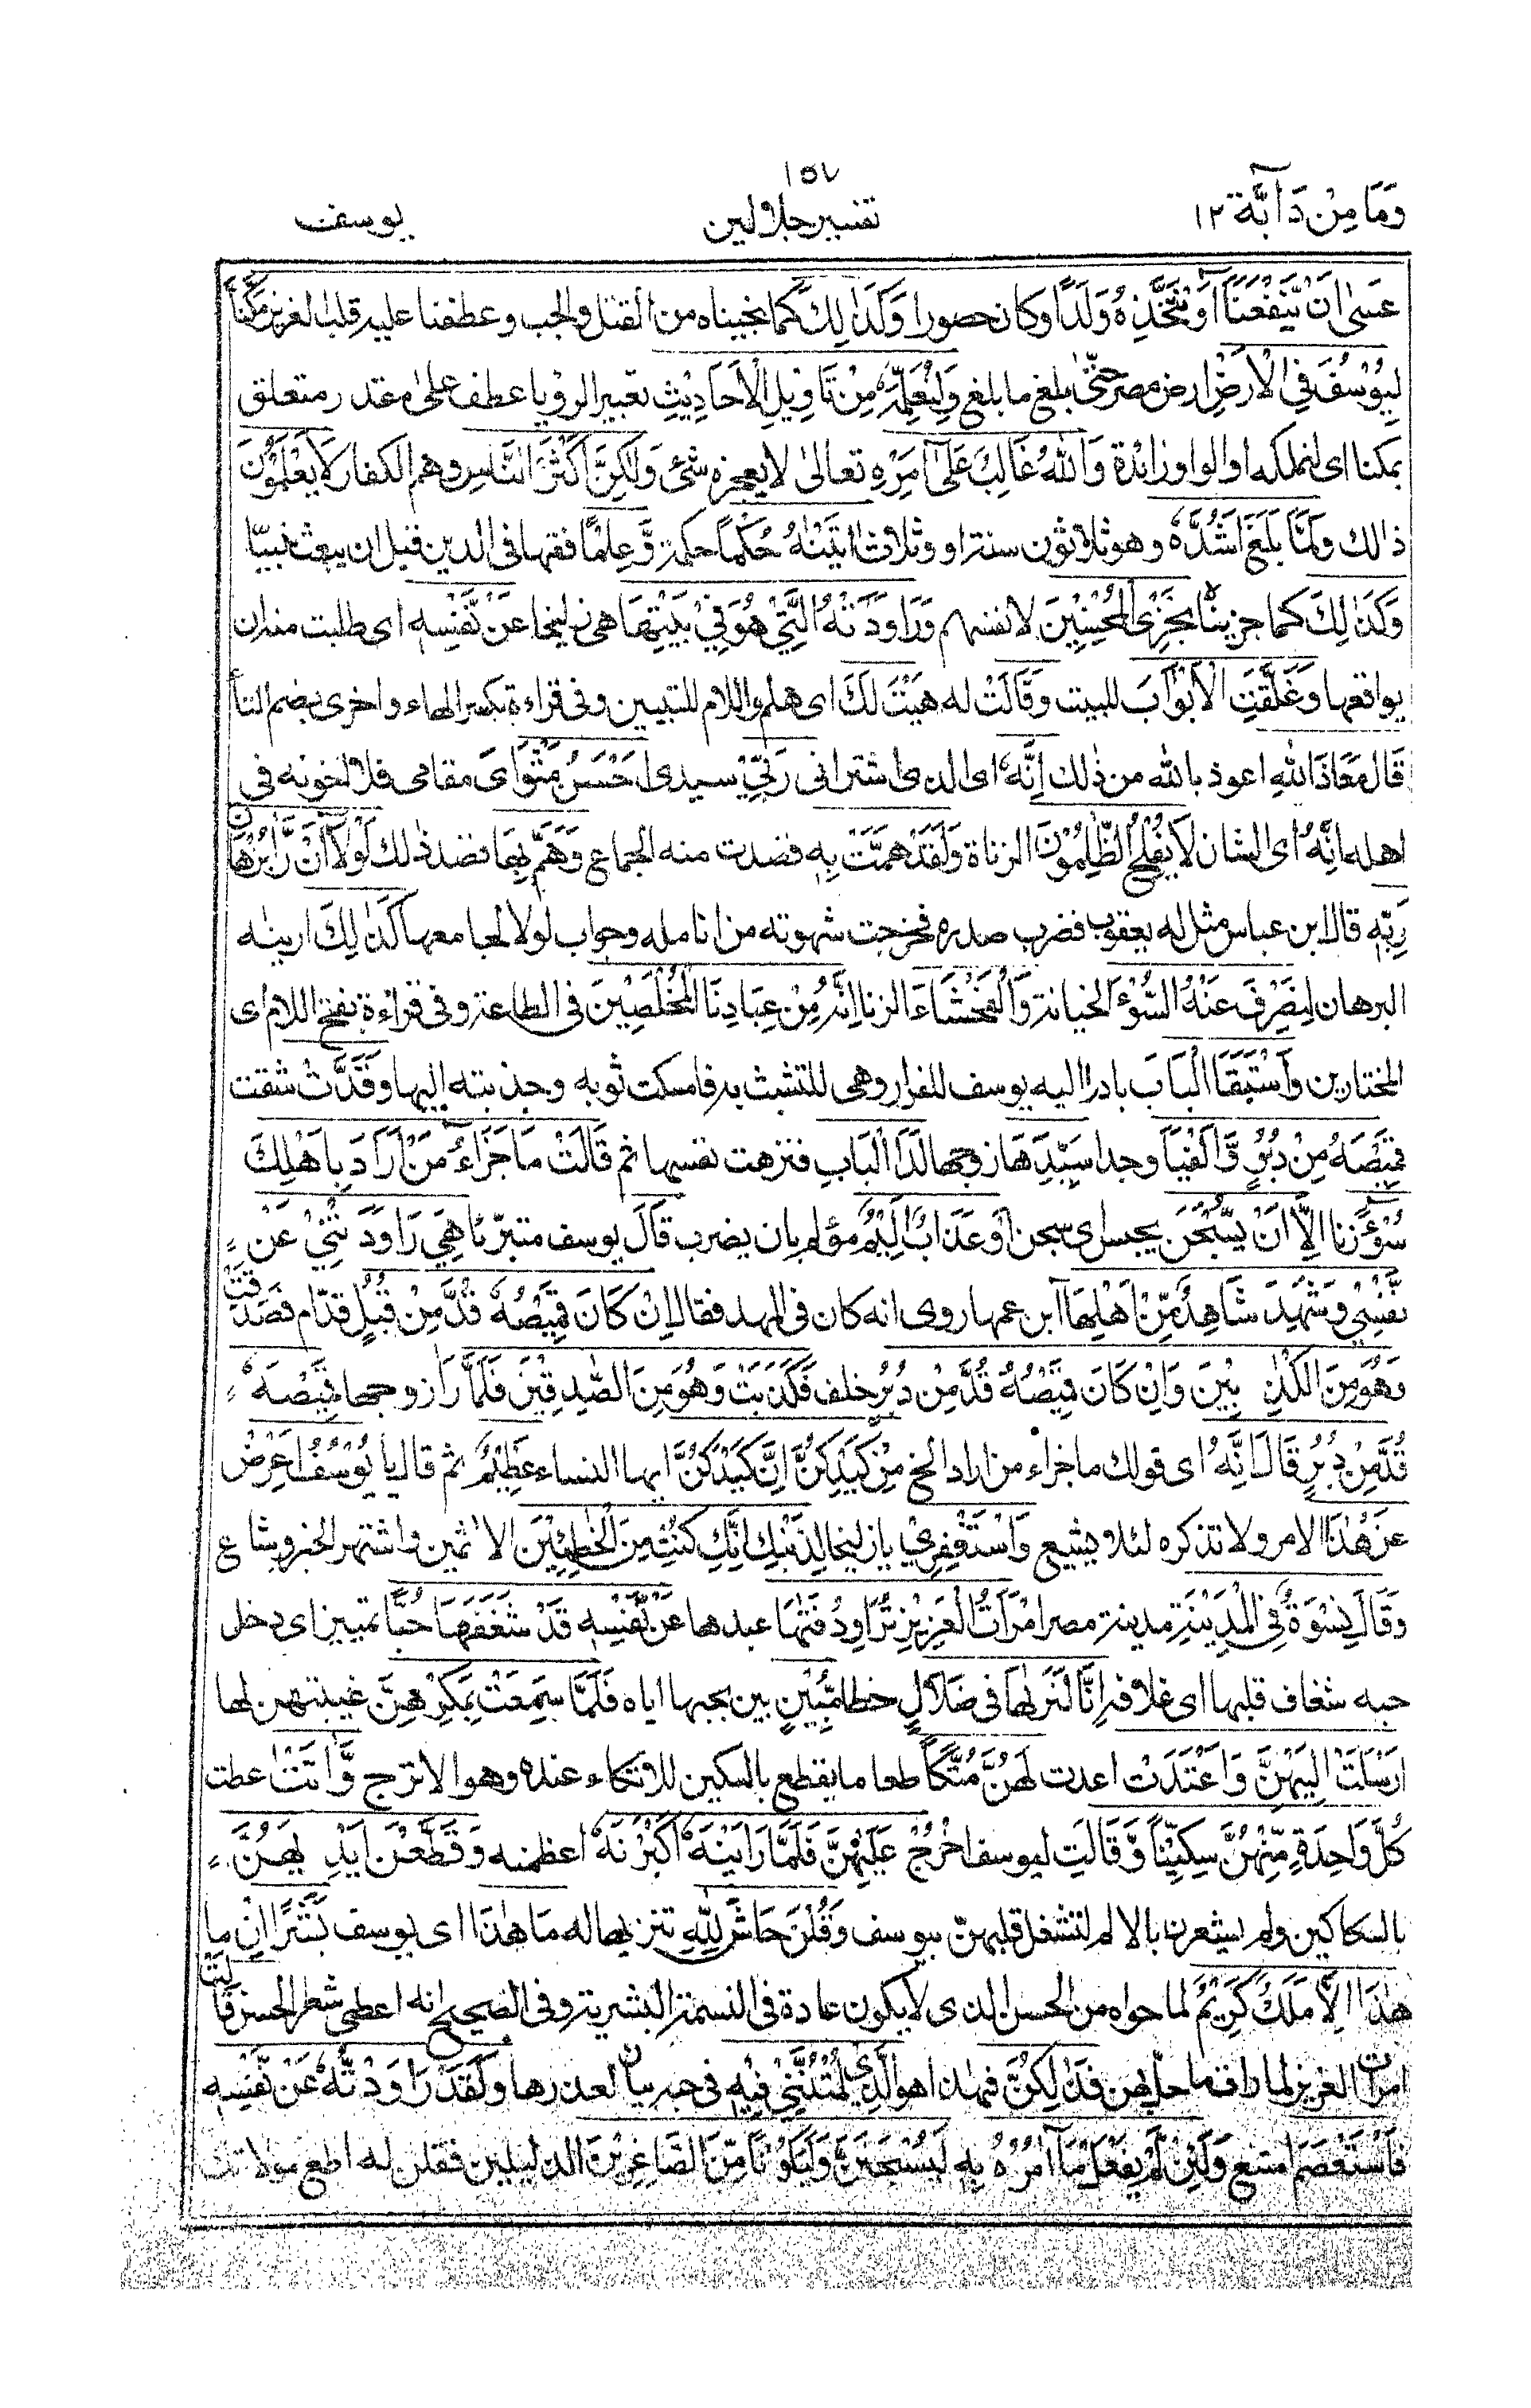 ١٥٧
وَمَا مِنْ دَآبَّة ١٢ تفسير جلالين يوسف
عَسٰى اَنْ يَّنْفَعَنَآ اَوْ نَتَّخِذَهٗ وَلَدًا وكان حصورا وَكَذٰلِكَ كما نجيناه من القتل والجب وعطفنا عليه قلب العزيز مَكَّنَّا
لِيُوْسُفَ فِى الْاَرْضِ ارض مصر حتى بلغ ما بلغ وَلِنُعَلِّمَهٗ مِنْ تَاْوِيْلِ الْاَحَادِيْثِ تعبير الرؤيا عطف على مقدر متعلق
بمكنا اى لنملكه او الواو زائدة وَاللّٰهُ غَالِبٌ عَلٰٓى اَمْرِهٖ تعالىٰ لا يعجزه شئ وَلٰكِنَّ اَكْثَرَ النَّاسِ وهم الكفار لَا يَعْلَمُوْنَ
ذالك وَلَمَّا بَلَغَ اَشُدَّهٗ وهو ثلاثون سنة او وثلاث اٰتَيْنٰهُ حُكْمًا حكمة وَّعِلْمًا فقها فى الدين قبل ان يبعث نبيّا
وَكَذٰلِكَ كما جزيناه نَجْزِى الْمُحْسِنِيْنَ لانفسهم وَرَاوَدَتْهُ الَّتِيْ هُوَ فِيْ بَيْتِهَا هى زليخا عَنْ نَّفْسِهٖ اى طلبت منه ان
يواقعها وَغَلَّقَتِ الْاَبْوَابَ للبيت وَقَالَتْ له هَيْتَ لَكَ اى هلم واللام للتبيين وفى قراءة بكسر الهاء واخرى بضم التا
قَالَ مَعَاذَ اللّٰهِ اعوذ بالله من ذٰلك اِنَّهٗ اى الذى اشترانى رَبِّيْ سيدى اَحْسَنَ مَثْوَاىَ مقامى فلا اخونه فى
اهله اِنَّهٗ اى الشان لَا يُفْلِحُ الظّٰلِمُوْنَ الزناة وَلَقَدْ هَمَّتْ بِهٖ قصدت منه الجماع وَهَمَّ بِهَا قصد ذٰلك لَوْلَآ اَنْ رَّاٰ بُرْهَانَ
رَبِّهٖ قال ابن عباس مثل له يعقوب فضرب صدره فخرجت شهوته من انامله وجواب لولا لجامعها كَذٰلِكَ اريناه
البرهان لِنَصْرِفَ عَنْهُ السُّوْٓءَ الخيانة وَالْفَحْشَآءَ الزنا اِنَّهٗ مِنْ عِبَادِنَا الْمُخْلَصِيْنَ فى الطاعة وفى قراءة بفتح اللام اى
المختارين وَاسْتَبَقَا الْبَابَ بادرا اليه يوسف للفرار وهى للتشبث به فامسكت ثوبه وجذبته اليها وَقَدَّتْ شقت
قَمِيْصَهٗ مِنْ دُبُرٍ وَّاَلْفَيَا وجدا سَيِّدَهَا زوجها لَدَا الْبَابِ فنزهت نفسها ثم قَالَتْ مَا جَزَآءُ مَنْ اَرَادَ بِاَهْلِكَ
سُوْٓءًا زنا اِلَّآ اَنْ يُّسْجَنَ يحبس اى سجن اَوْ عَذَابٌ اَلِيْمٌ مؤلم بان يضرب قَالَ يوسف متبرّئا هِيَ رَاوَدَتْنِيْ عَنْ
نَّفْسِيْ وَشَهِدَ شَاهِدٌ مِّنْ اَهْلِهَآ ابن عمها روى انه كان فى المهد فقال اِنْ كَانَ قَمِيْصُهٗ قُدَّ مِنْ قُبُلٍ قدّام فَصَدَقَتْ
وَهُوَ مِنَ الْكٰذِبِيْنَ وَاِنْ كَانَ قَمِيْصُهٗ قُدَّ مِنْ دُبُرٍ خلف فَكَذَبَتْ وَهُوَ مِنَ الصّٰدِقِيْنَ فَلَمَّا رَاٰ زوجها قَمِيْصَهٗ
قُدَّ مِنْ دُبُرٍ قَالَ اِنَّهٗ اى قولك ما جزاء من اراد الخ مِنْ كَيْدِكُنَّ اِنَّ كَيْدَكُنَّ ايها النساء عَظِيْمٌ ثم قال يا يُوْسُفُ اَعْرِضْ
عَنْ هٰذَا الامر ولا تذكره لئلا يشيع وَاسْتَغْفِرِيْ يا زليخا لِذَنْبِكِ اِنَّكِ كُنْتِ مِنَ الْخٰطِئِيْنَ الاٰثمين واشتهر الخبر وشاع
وَقَالَ نِسْوَةٌ فِى الْمَدِيْنَةِ مدينة مصر امْرَاَتُ الْعَزِيْزِ تُرَاوِدُ فَتٰهَا عبدها عَنْ نَّفْسِهٖ قَدْ شَغَفَهَا حُبًّا تمييز اى دخل
حبه شغاف قلبها اى غلافه اِنَّا لَنَرٰىهَا فى ضَلَالٍ خطا مُّبِيْنٍ بين بحبها اياه فَلَمَّا سَمِعَتْ بِمَكْرِهِنَّ غيبتهن لها
اَرْسَلَتْ اِلَيْهِنَّ وَاَعْتَدَتْ اعدت لَهُنَّ مُتَّكَاً طعاما يقطع بالسكين للاتكاء عنده وهو الاترج وَّاٰتَتْ اعطت
كُلَّ وَاحِدَةٍ مِّنْهُنَّ سِكِّيْنًا وَّقَالَتِ ليوسف اخْرُجْ عَلَيْهِنَّ فَلَمَّا رَاَيْنَهٗ اَكْبَرْنَهٗ اعظمنه وَقَطَّعْنَ اَيْدِيَهُنَّ
بالسكاكين ولم يشعرن بالالم لتشغل قلبهنّ بيوسف وَقُلْنَ حَاشَ لِلّٰهِ تنزيها له مَا هٰذَا اى يوسف بَشَرًا اِنْ ما
هٰذَآ اِلَّا مَلَكٌ كَرِيْمٌ لما حواه من الحسن الذى لا يكون عادة فى النسمة البشرية وفى الصحيح انه اعطى شطر الحسن قَالَتْ
امرأت العزيز لما رات ما حل بهن فَذٰلِكُنَّ فهٰذا هو الَّذِى لُمْتُنَّنِيْ فِيْهِ فى حبه بيان لعذرها وَلَقَدْ رَاوَدْتُّهٗ عَنْ نَّفْسِهٖ
فَاسْتَعْصَمَ امتنع وَلَئِنْ لَّمْ يَفْعَلْ مَآ اٰمُرُهٗ بِهٖ لَيُسْجَنَنَّ وَلَيَكُوْنًا مِّنَ الصَّاغِرِيْنَ الذليلين فقلن له اطع مولاتك